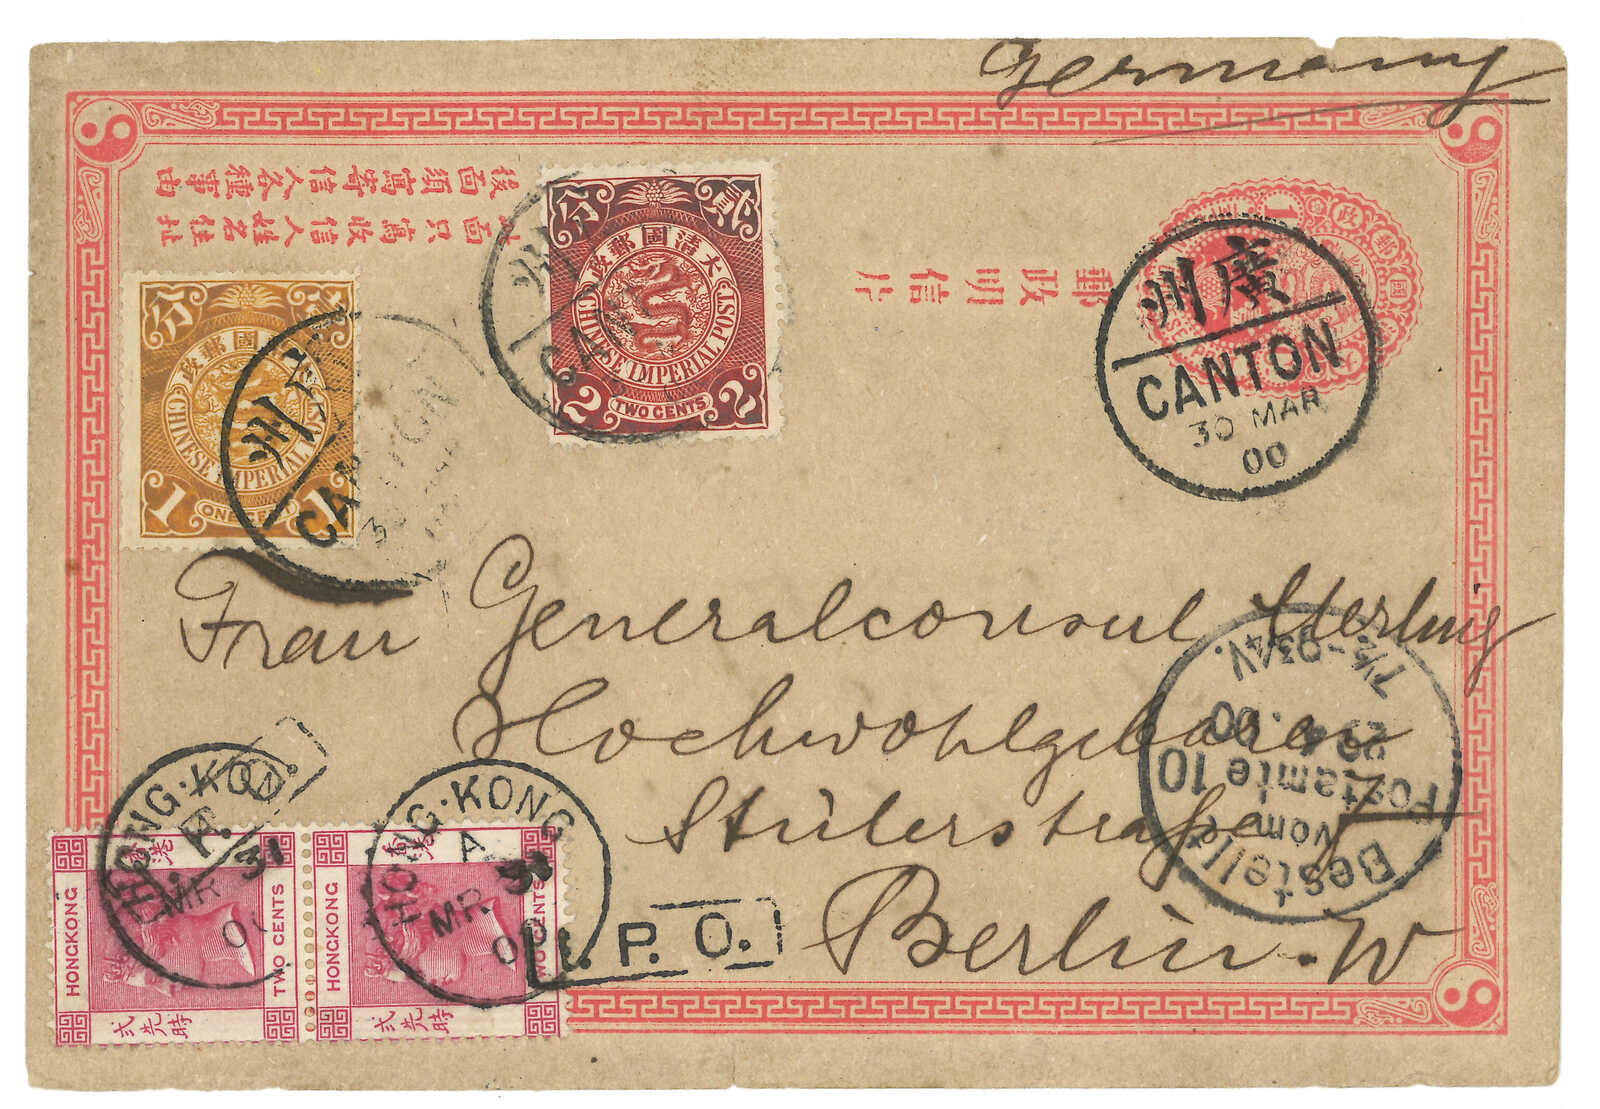 Germany
此面只寫收信人姓名住址
後面須寫寄信人各種事由
郵政明信片
大清國郵政
貳
分
CHINESE IMPERIAL POST
2 TWO CENTS 2
分
國郵政
CHINESE IMPERIAL POST
1 ONE CENT 1
州
CANTON
廣州
CANTON
30 MAR
00
Frau Generalconsul
Hochwohlgeboren
Stülerstraße
Berlin. W
Bestellt
vom
Postamte 10
29.4.00
7½-93/4V.
HONG-KONG
MR 31
00
HONG-KONG
A
MR 31
00
I.P.O.
HONGKONG
TWO CENTS
弍先時
HONGKONG
TWO CENTS
弍先時